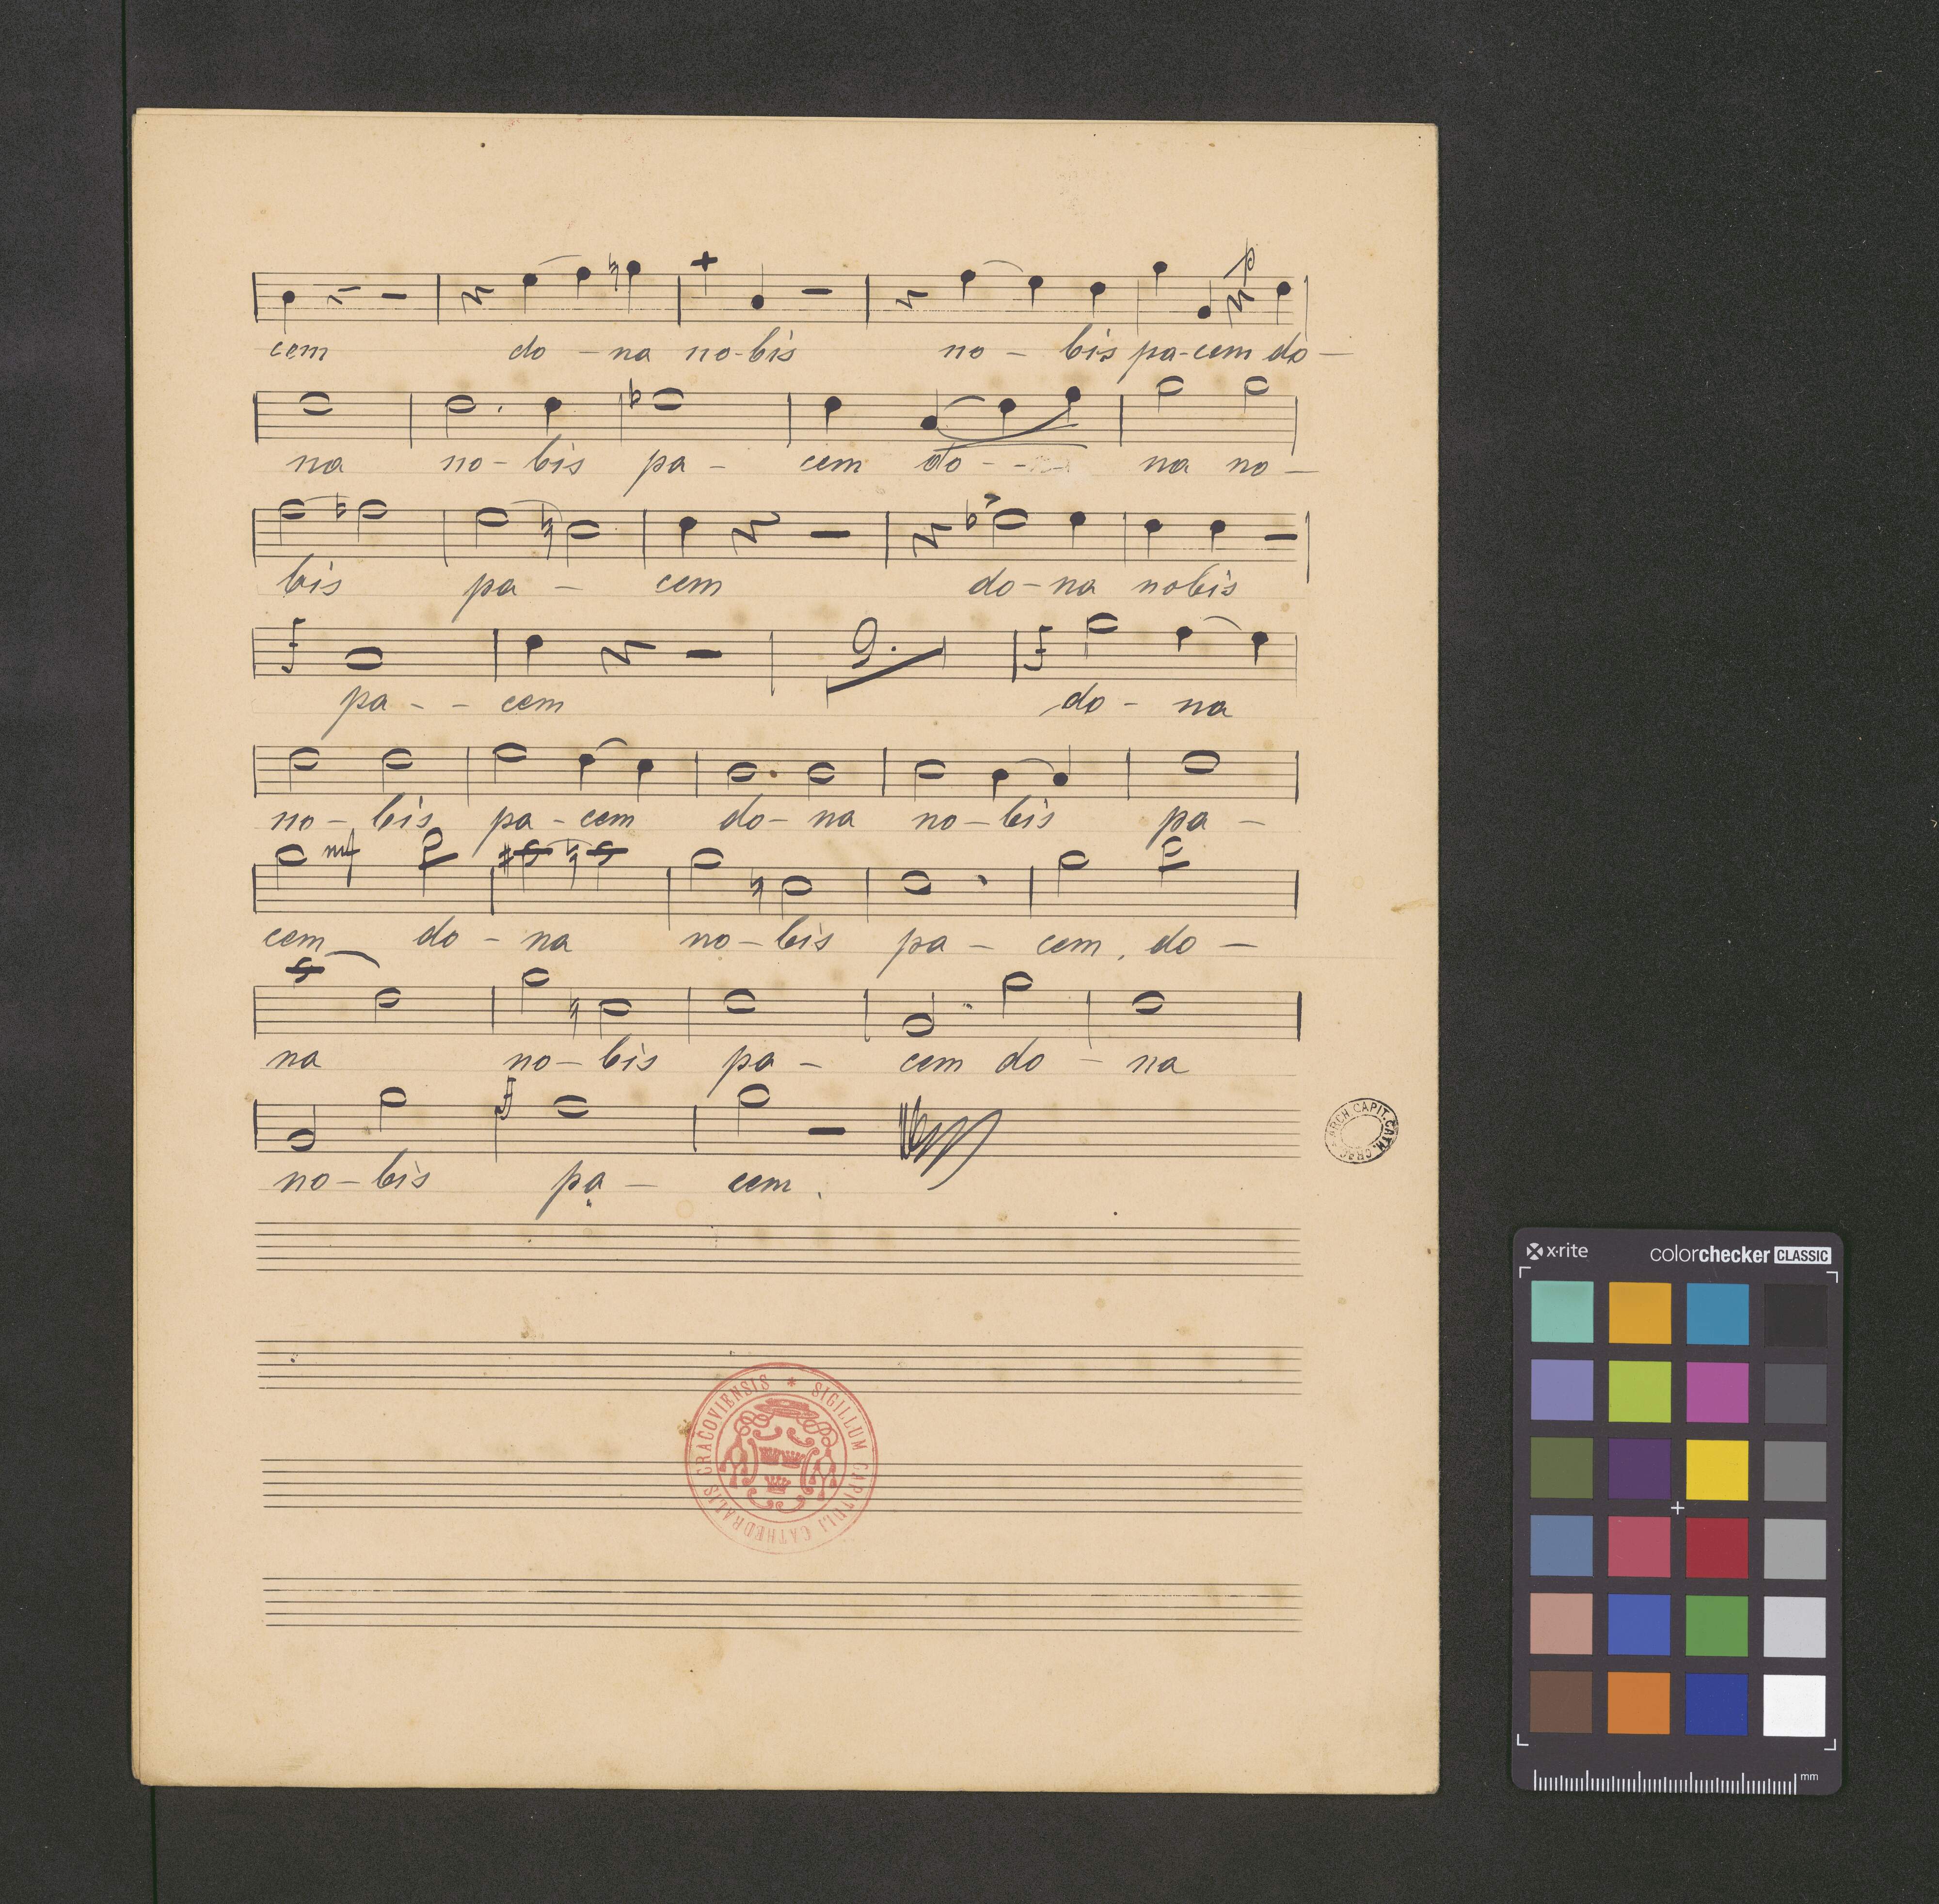 p
cem do - na no-bis no - bis pa-cem do -
na no - bis pa - cem do - - na no -
bis pa - cem do - na nobis
f 9. f
pa - - cem do - na
no - bis pa - cem do - na no - bis pa -
mf
cem do - na no - bis pa - cem, do -
na no - bis pa - cem do - na
no - bis pa - cem.
ARCH. CAPIT. CATH. CRAC.
SIGILLUM CAPITULI CATHEDRALIS CRACOVIENSIS *
x·rite colorchecker CLASSIC
mm